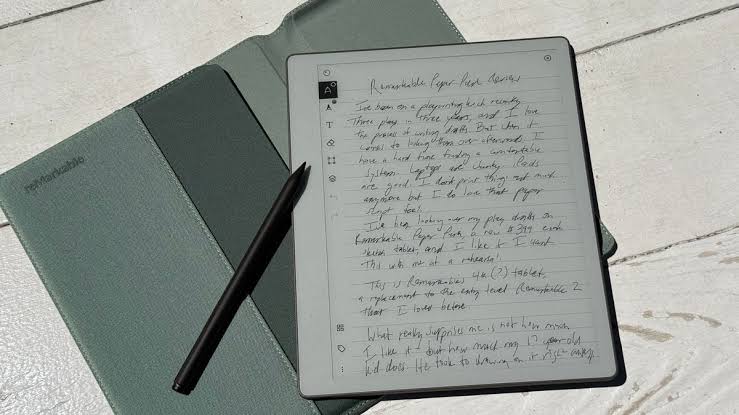 reMarkable
Remarkable Paper Pure Review
I've been on a playwriting kick recently.
Three plays in three years, and I love
the process of writing drafts. But when it
comes to looking them over afterwards, I
have a hard time finding a comfortable
system. Laptops are clunky. iPads
are good. I don't print things out much
anymore but I do love that paper
script feel.
I've been looking over my play drafts on
Remarkable Paper Pure, a new $399 e-ink
tablet, and I like it. I want
this with me at a rehearsal.
This is Remarkable's 4th (?) tablet,
a replacement to the entry level Remarkable 2
that I loved before.
What really surprises me is not how much
I like it, but how much my 17 year old
kid does. He took to drawing on it right away.